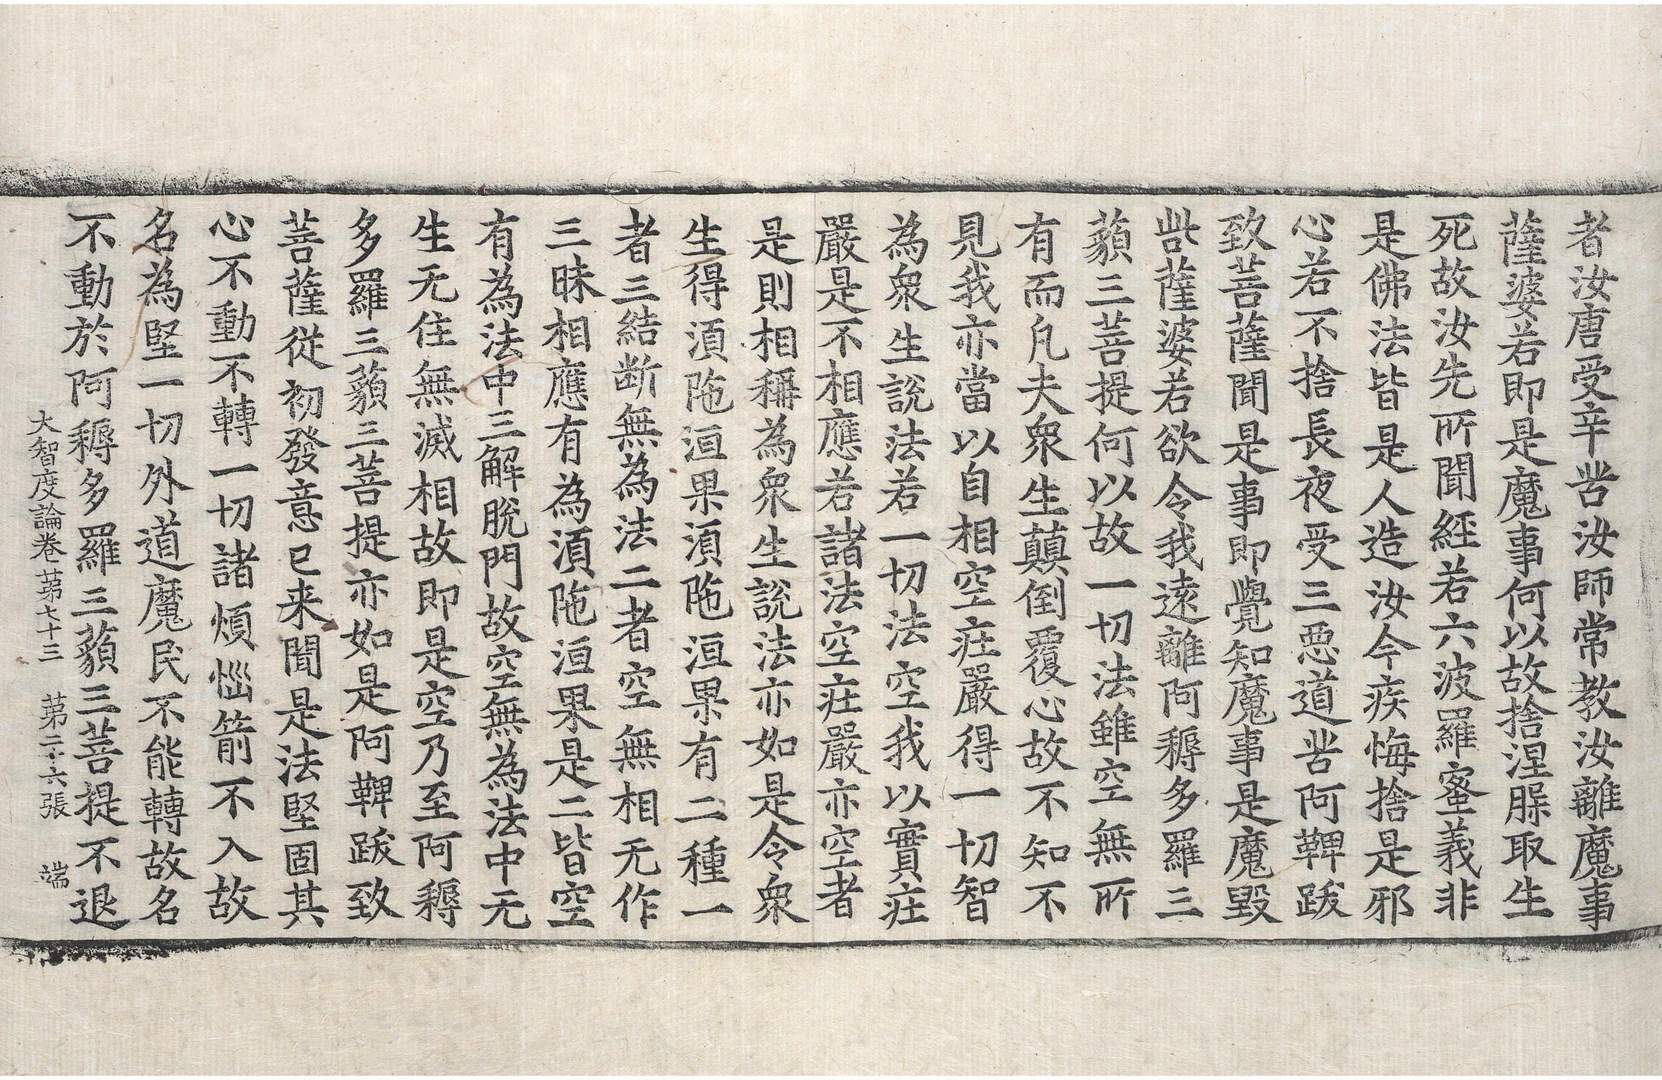 者汝唐受辛苦汝師常教汝離魔事
薩婆若即是魔事何以故捨涅槃取生
死故汝先所聞經若六波羅蜜義非
是佛法皆是人造汝今疾悔捨是邪
心若不捨長夜受三惡道苦阿鞞跋
致菩薩聞是事即覺知魔事是魔毀
呰薩婆若欲令我遠離阿耨多羅三
藐三菩提何以故一切法雖空無所
有而凡夫衆生顛倒覆心故不知不
見我亦當以自相空庄嚴得一切智
為衆生說法若一切法空我以實庄
嚴是不相應若諸法空庄嚴亦空者
是則相稱為衆生說法亦如是令衆
生得湏陁洹果湏陁洹果有二種一
者三結断無為法二者空無相无作
三昧相應有為湏陁洹果是二皆空
有為法中三解脫門故空無為法中无
生无住無滅相故即是空乃至阿耨
多羅三藐三菩提亦如是阿鞞跋致
菩薩從初發意已来聞是法堅固其
心不動不轉一切諸煩惱箭不入故
名為堅一切外道魔民不能轉故名
不動於阿耨多羅三藐三菩提不退
大智度論卷苐七十三　苐二十六張　端